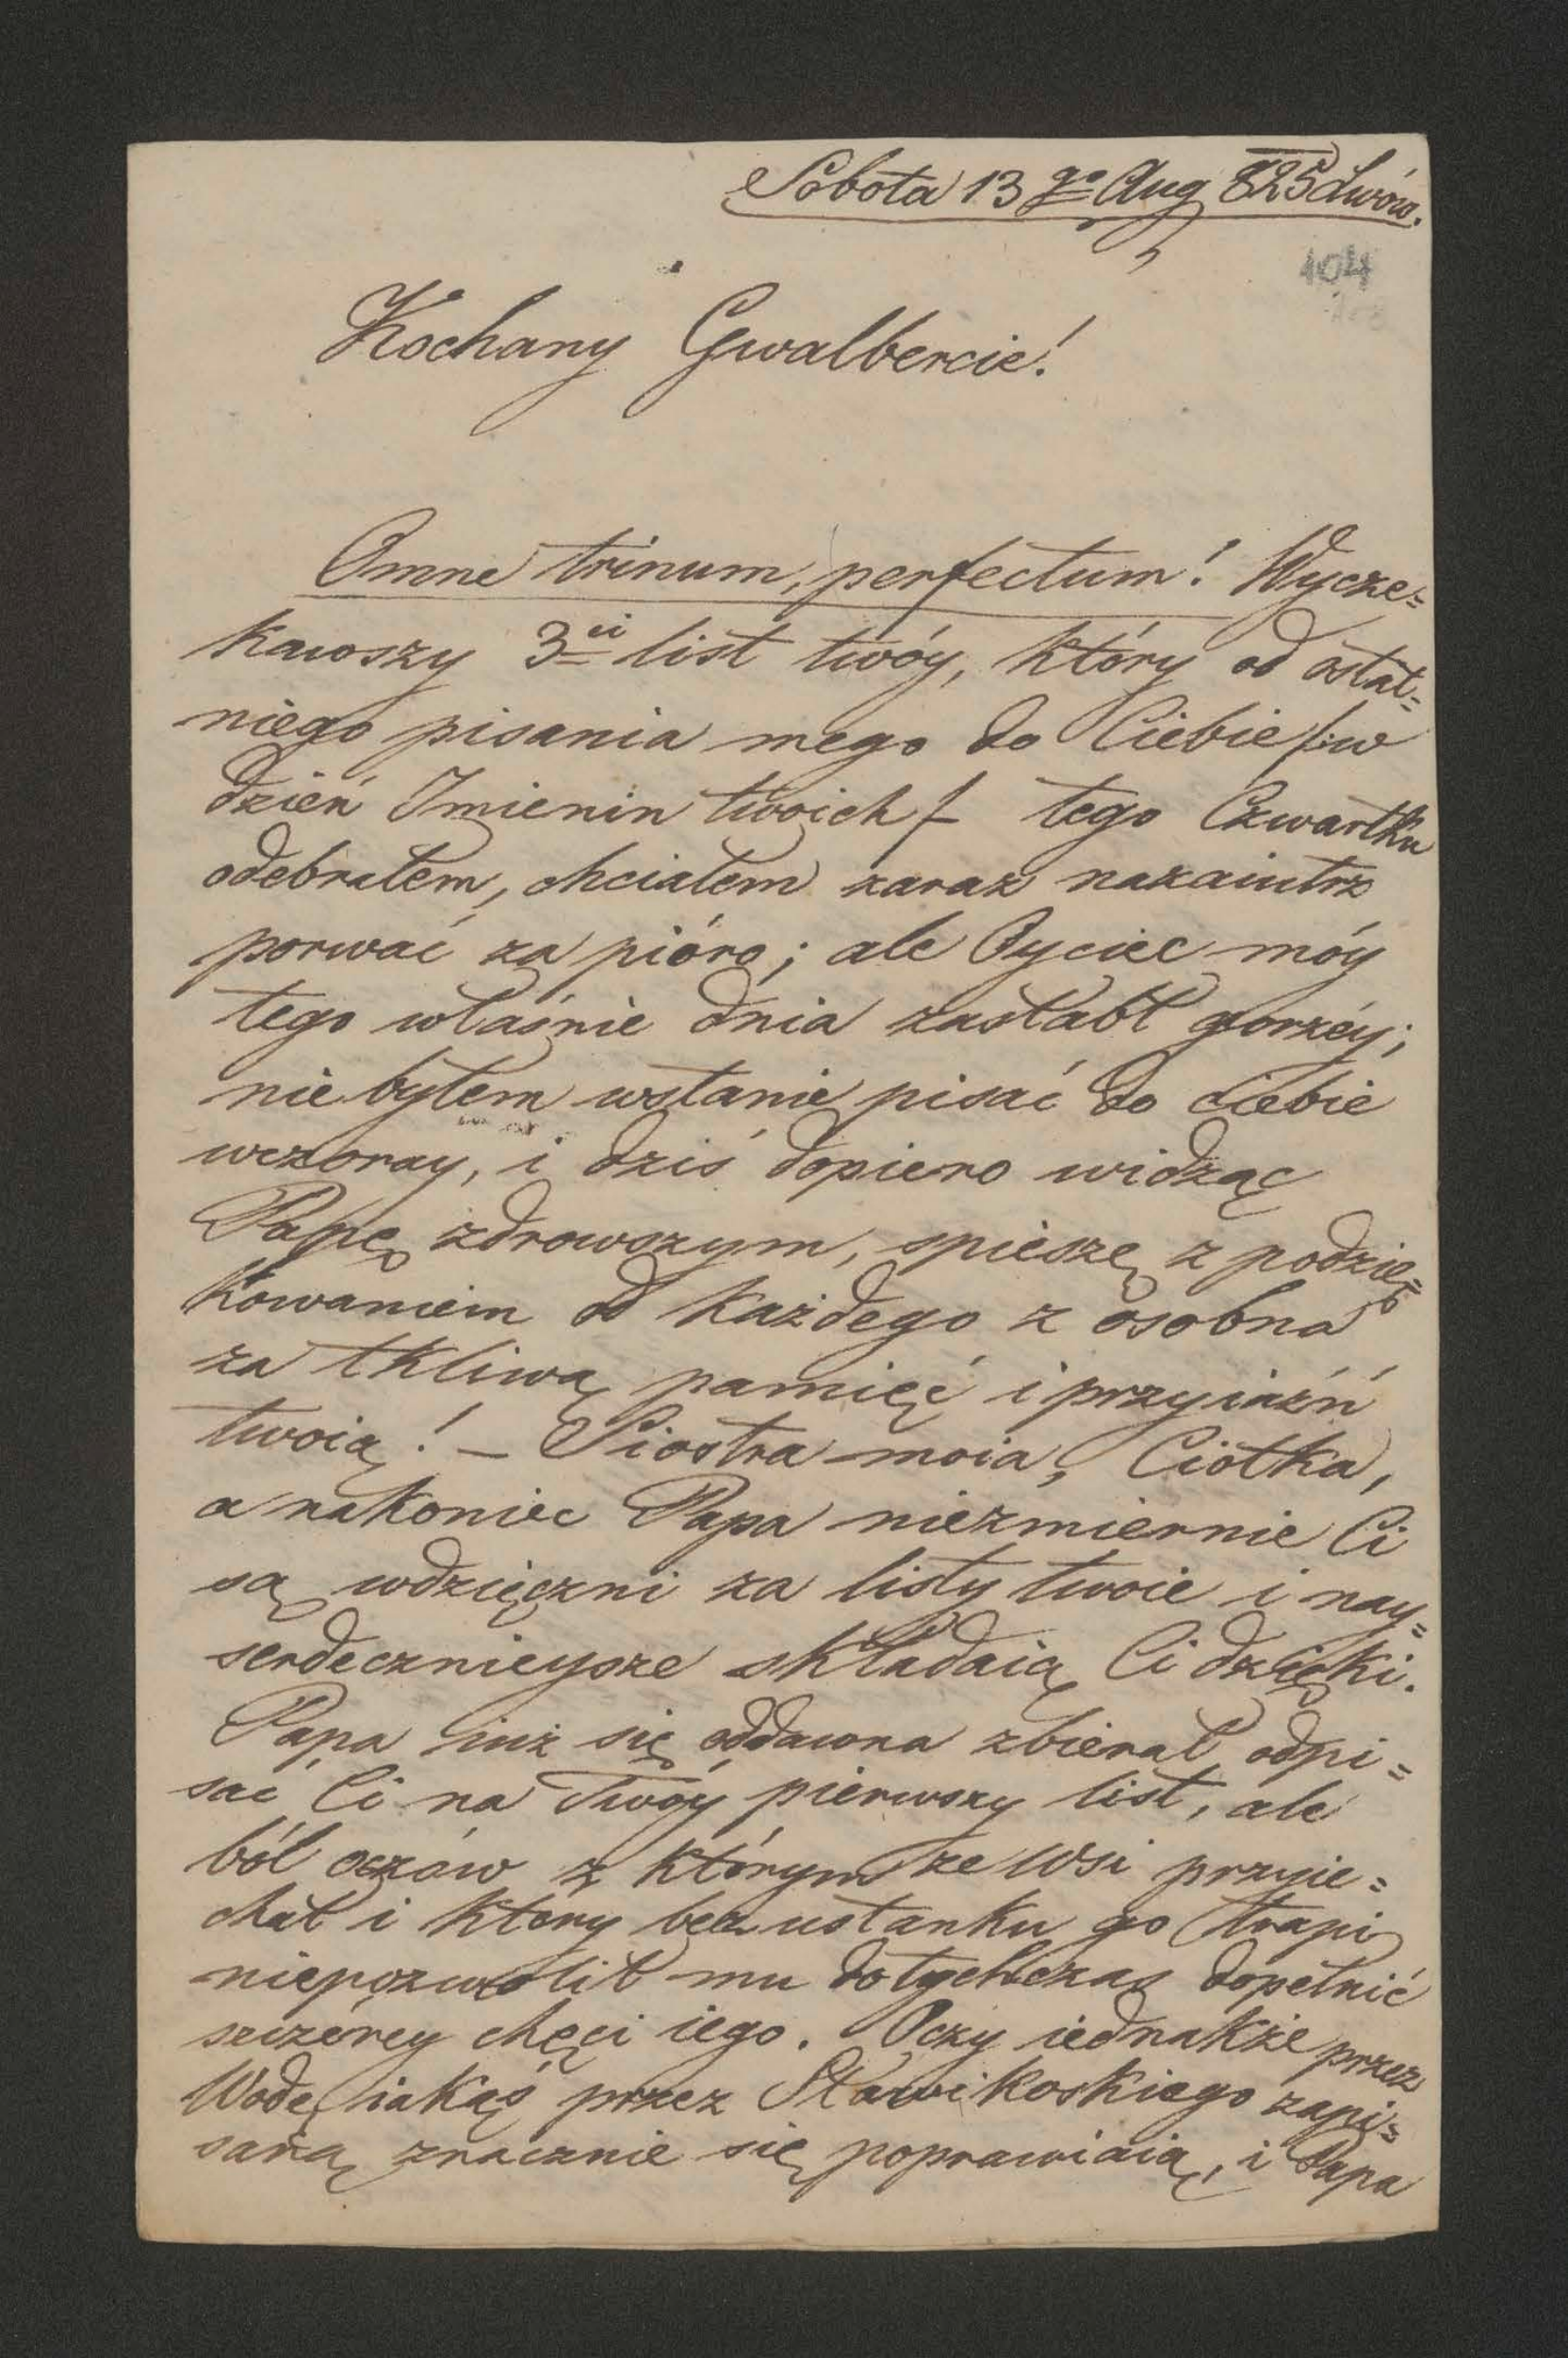 Sobota 13 go Aug 825 Lwów.
104
Kochany Gwalbercie!
Omne trinum, perfectum! Wycze=
kawszy 3ci list twóy, który od ostat=
niego pisania mego do Ciebie /:w
dzień Imienin twoich/ – tego Czwartku
odebrałem, chciałem zaraz nazaiutrz
porwać za pióro; ale Oyciec móy
tego właśnie dnia zasłabł gorzéy;
nie byłem wstanie pisać do ciebie
wczoray, i dziś dopiero widząc
Papę zdrowszym, spieszę z podzię=
kowaniem od każdego z osobna
za tkliwą pamięć i przyiaźń
twoią! – Siostra moia, Ciotka,
a nakoniec Papa niezmiernie Ci
są wdzięczni za listy twoie i nay=
serdecznieysze składaią Ci dzięki.
Papa iuż się oddawna zbierał odpi=
sać Ci na Twóy pierwszy list, ale
ból oczów z którym ze wsi przyie=
chał i który bez ustanku go trapi
niepozwolił mu dotychczas dopełnić
szczérey chęci iego. Oczy iednakże przez
Wodę iakąś przez Sławikoskiego zapi=
saną znacznie się poprawiaią, i Papa